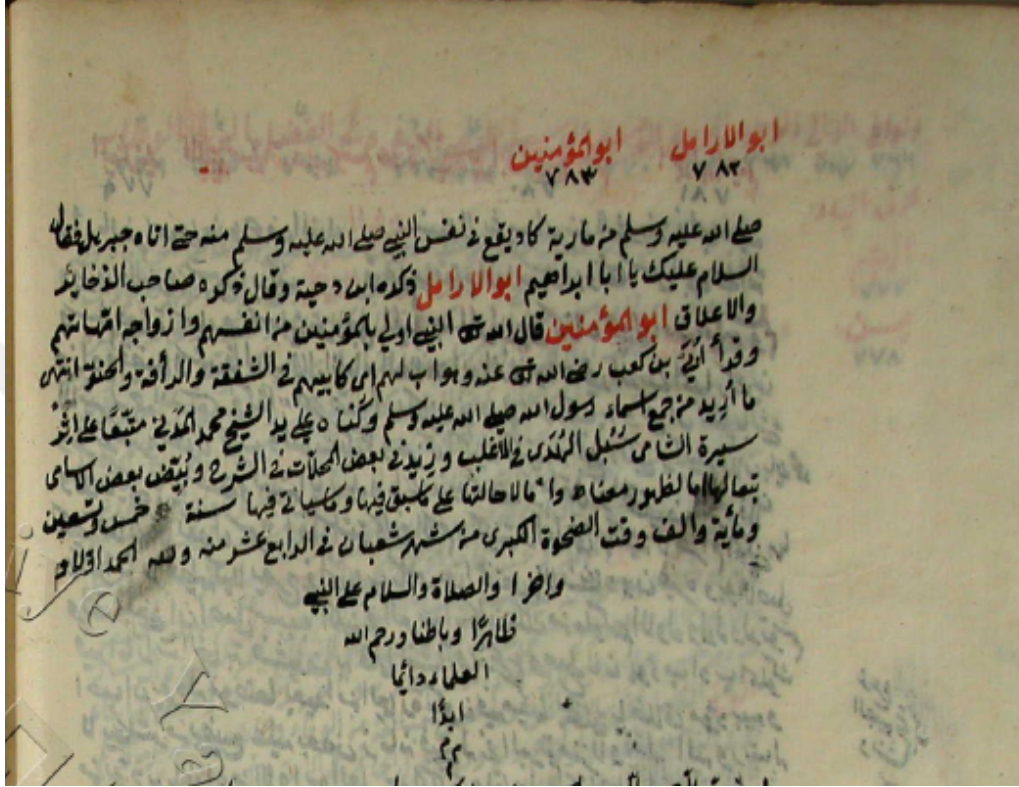 ابو الارامل ابو المؤمنين
٧٨٢ ٧٨٣
صلى الله عليه وسلم من مارية كاد يقع في نفس النبي صلى الله عليه وسلم منه حتى اتاه جبريل فقال
السلام عليك يا ابا ابراهيم ابو الارامل ذكره ابن دحية وقال ذكره صاحب الذخاير
والاعلاق ابو المؤمنين قال الله تعالى النبي اولى بالمؤمنين من انفسهم وازواجه امهاتهم
وقرأ أُبَيّ بن كعب رضى الله تعالى عنه وهو اب لهم اى كابيهم في الشفقة والرأفة والحنو انتهى
ما أريد من جمع اسماء رسول الله صلى الله عليه وسلم على يد الشيخ محمد المدني متبعًا على اثر
سيرة الشامى سُبُل الهُدَى في الاغلب وزيد في بعض المحلات في الشرح وبُيّض بعض الاسامى
تبعا لها اما لظهور معناه واما لاحالتها على ما سبق فيها وما سيأتى فيها سنة خمس وتسعين
ومأية والف وقت الضحوة الكبرى من شهر شعبان في الرابع عشر منه ولله الحمد اوّلا و
واخرا والصلاة والسلام على النبي
ظاهرًا وباطنا ورحم الله
العلماء دائما
ابدًا
م م
م